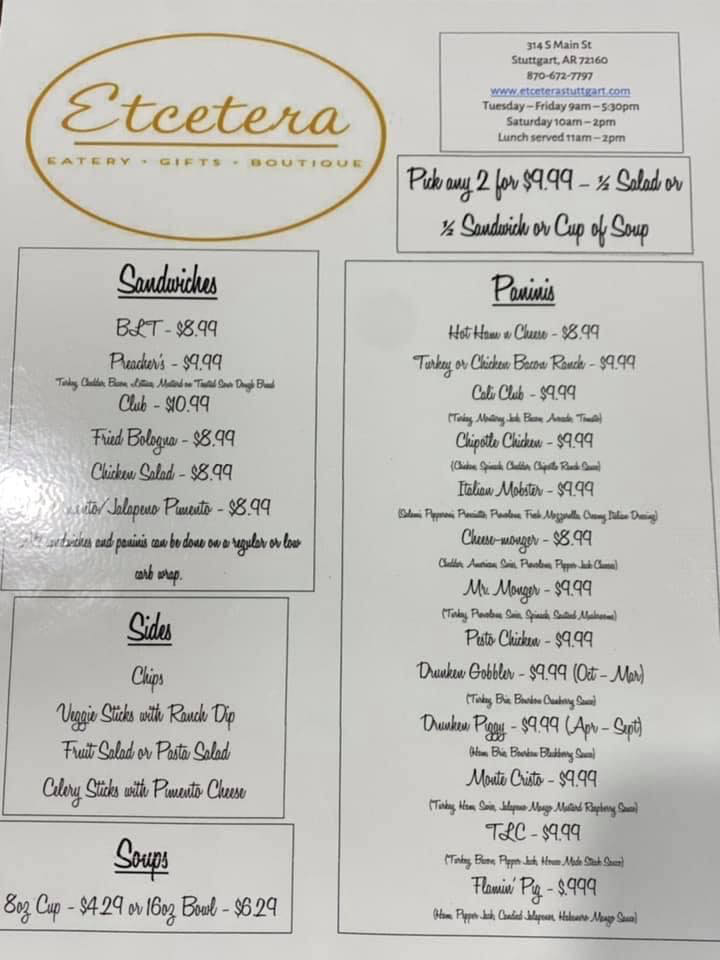 Etcetera
EATERY • GIFTS • BOUTIQUE
314 S Main St
Stuttgart, AR 72160
870-672-7797
www.etceterastuttgart.com
Tuesday – Friday 9am – 5:30pm
Saturday 10am – 2pm
Lunch served 11am – 2pm
Pick any 2 for $9.99 – ½ Salad or
½ Sandwich or Cup of Soup
Sandwiches
BLT - $8.99
Preacher's - $9.99
Turkey, Cheddar, Bacon, Lettuce, Mustard on Toasted Sour Dough Bread
Club - $10.99
Fried Bologna - $8.99
Chicken Salad - $8.99
/Jalapeno Pimento - $8.99
and paninis can be done on a regular or low
carb wrap.
Sides
Chips
Veggie Sticks with Ranch Dip
Fruit Salad or Pasta Salad
Celery Sticks with Pimento Cheese
Soups
8oz Cup - $4.29 or 16oz Bowl - $6.29
Paninis
Hot Ham n Cheese - $8.99
Turkey or Chicken Bacon Ranch - $9.99
Cali Club - $9.99
(Turkey, Monterey Jack, Bacon, Avocado, Tomato)
Chipotle Chicken - $9.99
(Chicken, Spinach, Cheddar, Chipotle Ranch Sauce)
Italian Mobster - $9.99
(Salami, Pepperoni, Prosciutto, Provolone, Fresh Mozzarella, Creamy Italian Dressing)
Cheese-monger - $8.99
Cheddar, American, Swiss, Provolone, Pepper Jack Cheeses)
Mr. Monger - $9.99
(Turkey, Provolone, Swiss, Spinach, Sautéed Mushrooms)
Pesto Chicken - $9.99
Drunken Gobbler - $9.99 (Oct – Mar)
(Turkey, Brie, Bourbon Cranberry Sauce)
Drunken Piggy - $9.99 (Apr – Sept)
(Ham, Brie, Bourbon Blackberry Sauce)
Monte Cristo - $9.99
(Turkey, Ham, Swiss, Jalapeno Mango Mustard Raspberry Sauce)
TLC - $9.99
(Turkey, Bacon, Pepper Jack, House Made Steak Sauce)
Flamin' Pig - $.999
(Ham, Pepper Jack, Candied Jalapenos, Habanero Mango Sauce)